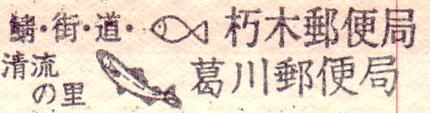 鯖・街・道・朽木郵便局
清流の里 葛川郵便局